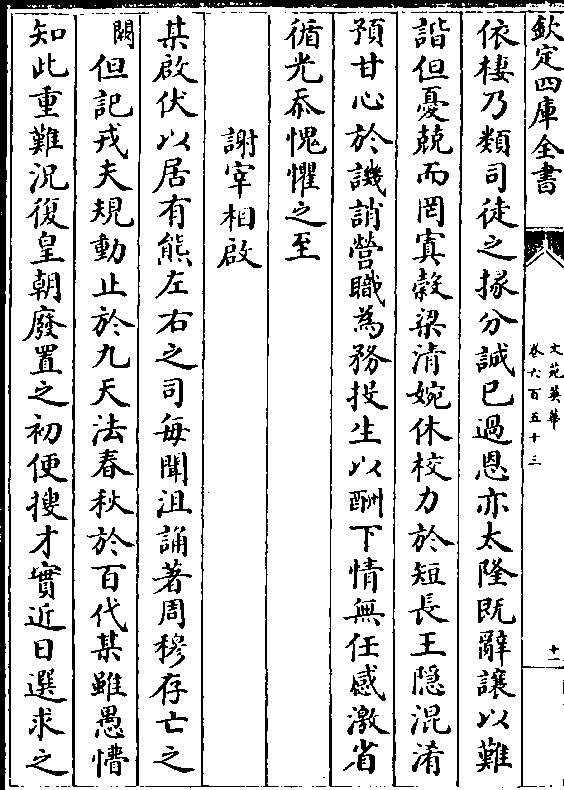 欽定四庫全書
文苑英華
卷六百五十三
十一
依棲乃類司徒之掾分誠已過恩亦太隆既辭讓以難
諧但憂兢而罔寘穀梁清婉休校力於短長王隱混淆
預甘心於譏誚營職為務投生以酬下情無任感激省
循光忝愧懼之至
謝宰相啟
某啟伏以居有熊左右之司每聞沮誦著周穆存亡之
闕但記戎夫規動止於九天法春秋於百代某雖愚懵
知此重難況復皇朝廢置之初便搜才實近日選求之